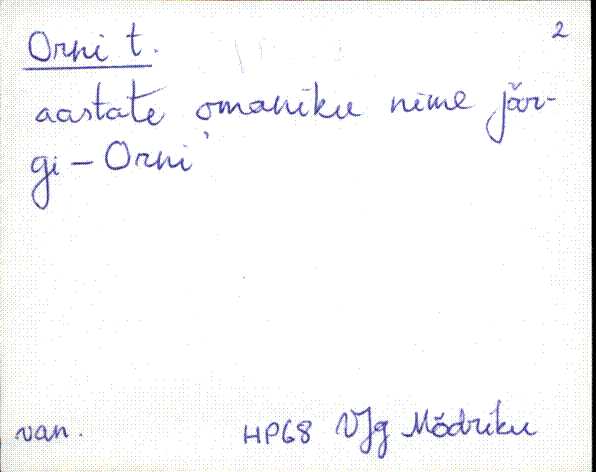 2
Orni t.
aastate omaniku nime jär-
gi – Orni
van.
HP68 VJg Mõdriku